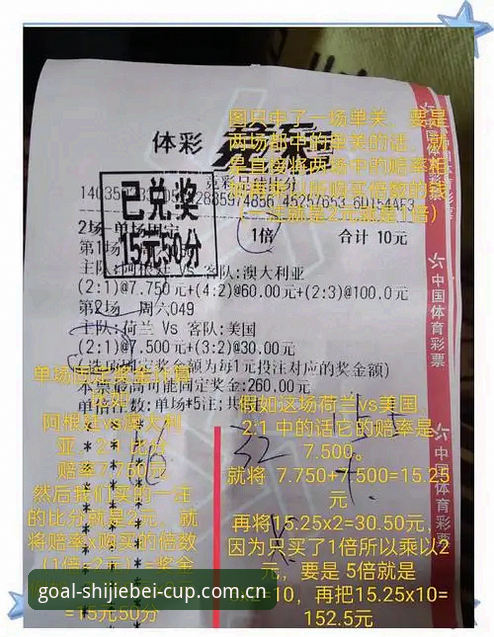 图只中了一场单关，要是
两场都中的单关的话，就
是直接将两场中的赔率相
(一注就是2元就是1倍)
体彩
已兑奖
15元50分
2场-单场固定
1倍
合计 10元
第1场
主队:阿根廷 VS 客队:澳大利亚
(2:1)@7.750元+(4:2)@60.00元+(2:3)@100.0元
第2场 周六049
主队:荷兰 Vs 客队:美国
(2:1)@7.500元+(3:2)@30.00元
(选项固定奖金额为每1元投注对应的奖金额)
本票最高可能固定奖金:260.00元
单倍注数:单场*5注;共
中国体育彩票
中国体育彩票
中国体育彩票
单场固定奖金计算
阿根廷vs澳大利
亚，2:1 比分
赔率7.750元
然后我们买的一注
的比分就是2元，就
将赔率x购买的倍数
(1倍=2元) =奖金
=15元50分
假如这场荷兰vs美国
2:1 中的话它的赔率是
7.500。
就将 7.750+7.500=15.25
元
再将15.25x2=30.50元，
因为只买了1倍所以乘以2
元，要是 5倍就是
=10，再把15.25x10=
152.5元
goal-shijiebei-cup.com.cn